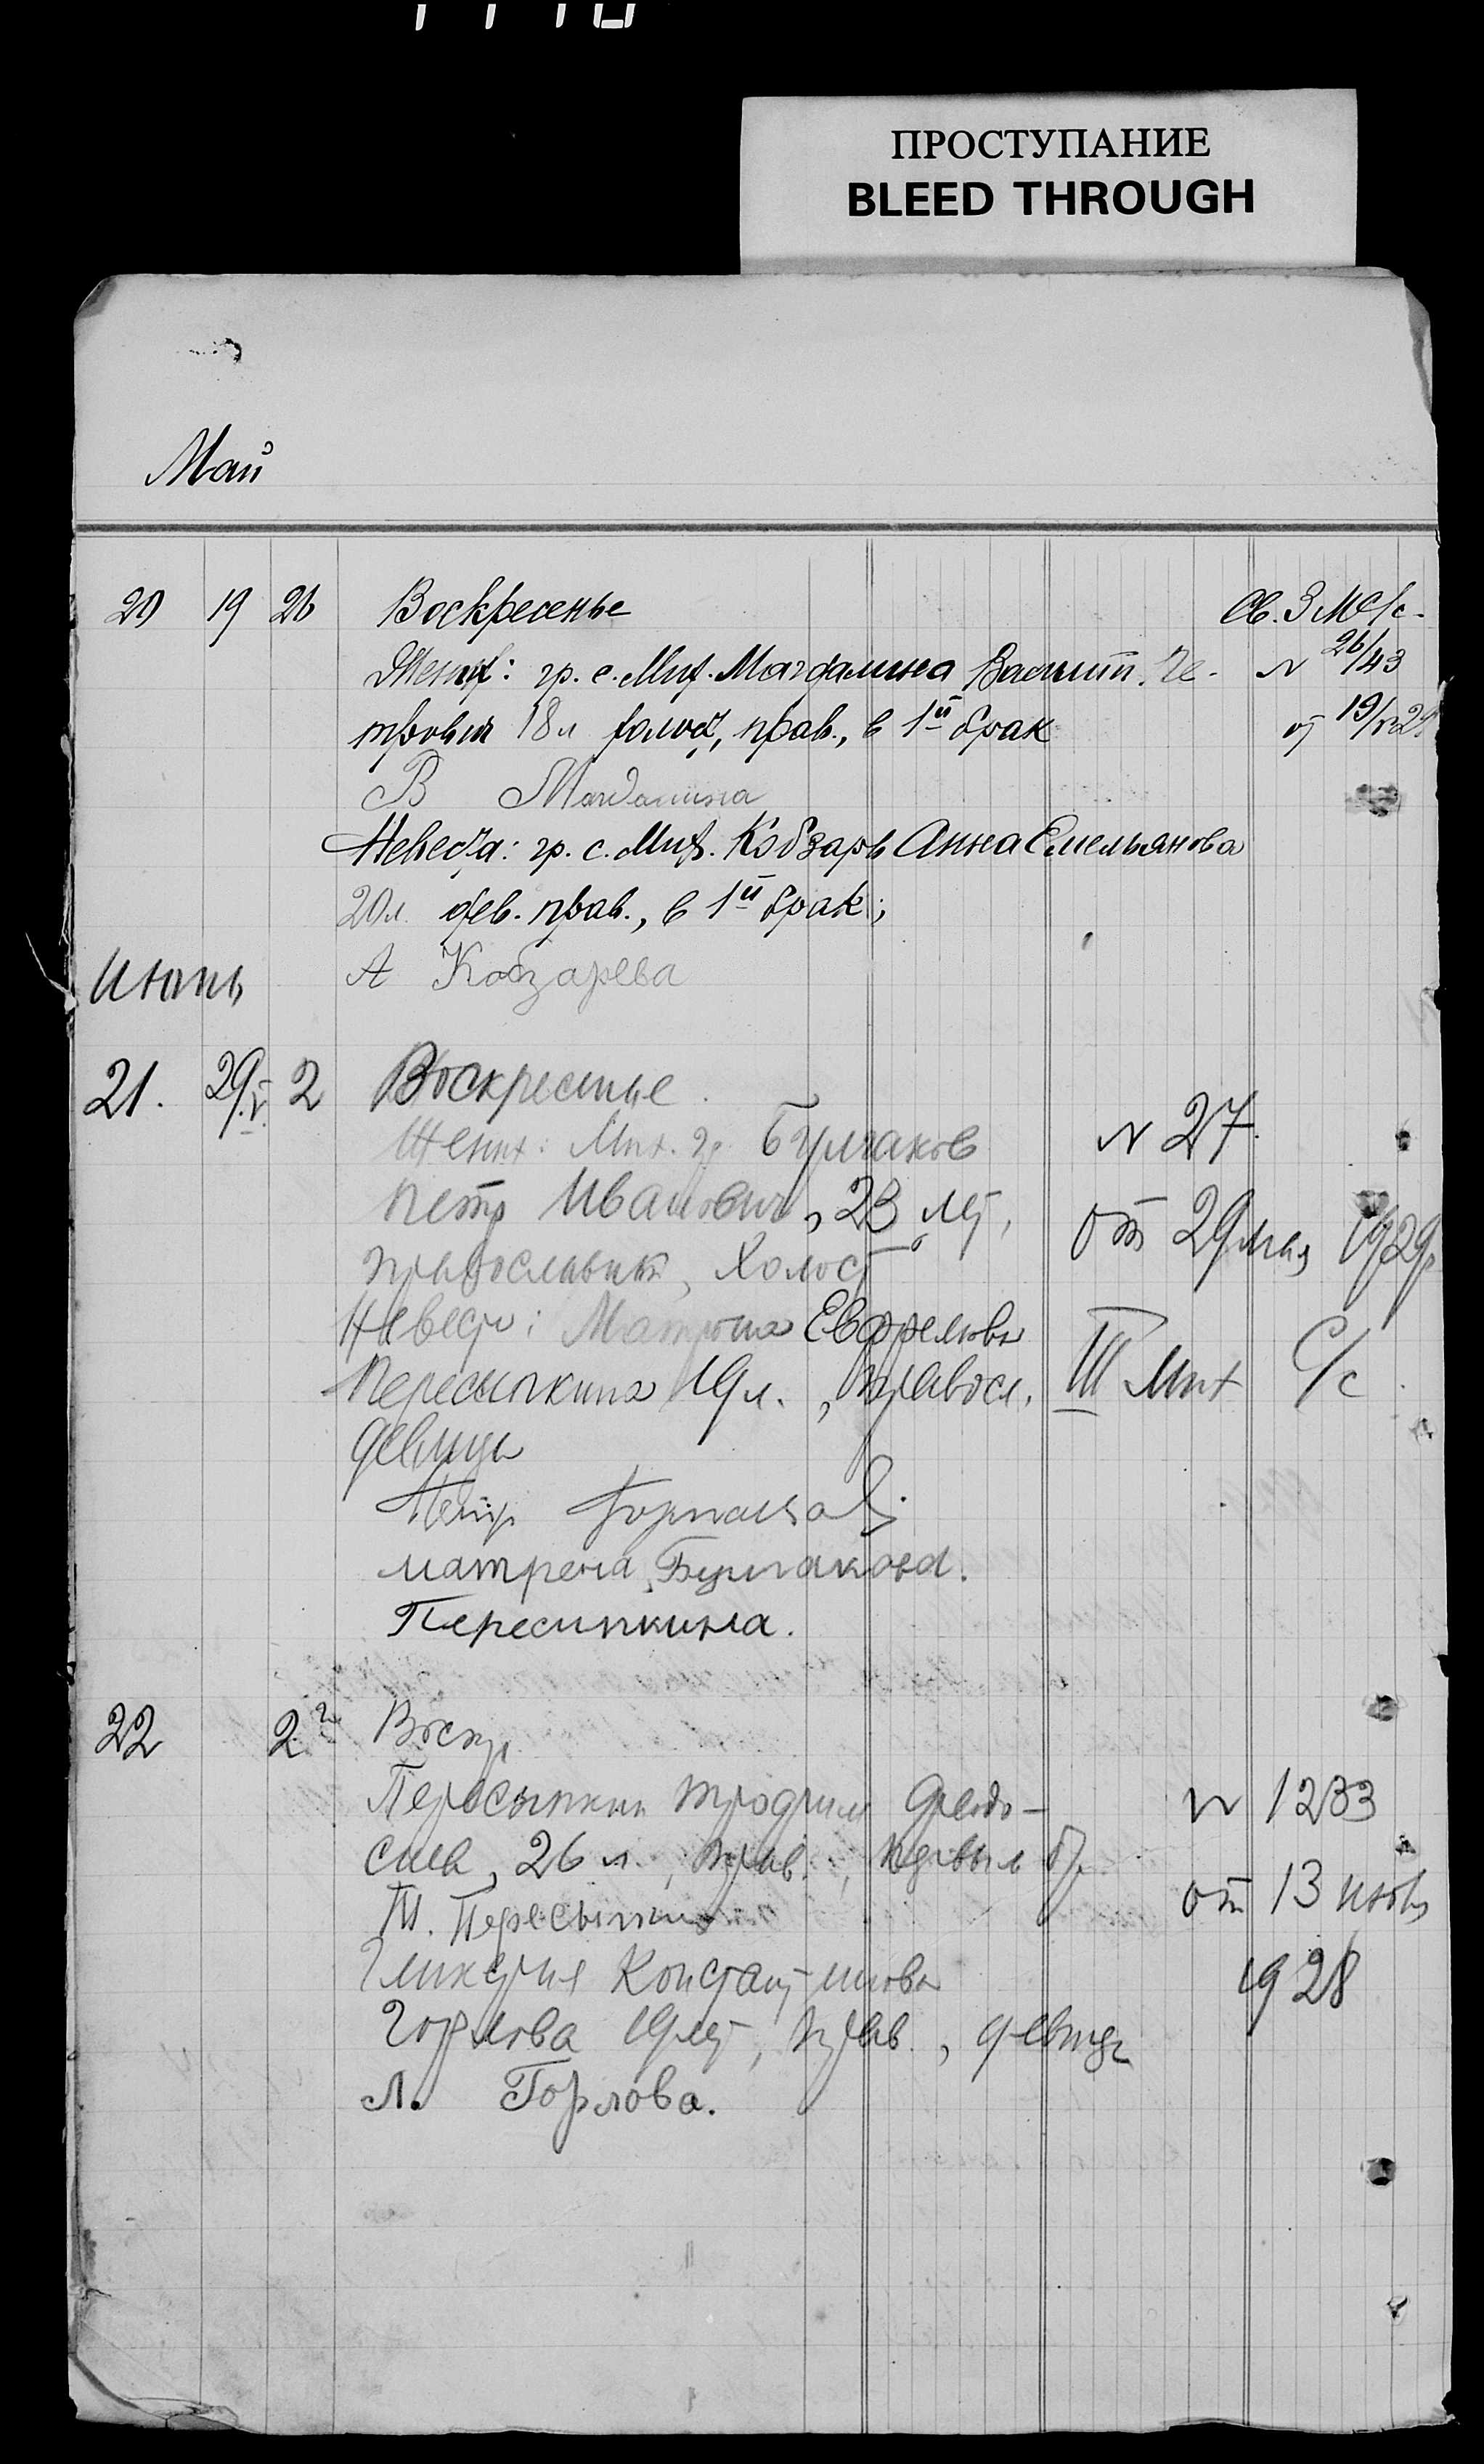 ПРОСТУПАНИЕ
BLEED THROUGH
Май
20 19 26 Воскресенье Св. 3 М С/с-
Жених: гр. с. Мих. Магдалина Василий Пе- N 26/43
трович 18 л холост, прав., в 1й брак от 19/V 29
В Магдалина
Невеста: гр. с. Мих. Кобзарь Анна Емельянова
20 л. дев. прав., в 1й брак;
Июнь А Кобзарева
21. 29/V. 2 Воскресенье.
Жених: Мих. гр. Булгаков N 27.
Петр Иванович, 23 лет, от 29 мая 1929 г
православный, холост
Невеста: Матрона
Пересыпкина 19 л., правосл. III Мих С/с.
девица
Петр
матрена Булгакова.
Пересипкина.
22 2 Воскр.
Пересыпкин Трофим Федо- N 1233
сиев, 26 л., прав., первым бр. от 13
Т. Пересыпкин
Гликерия Константинова 1928
Горлова 19 лет, прав., девица
Л. Горлова.